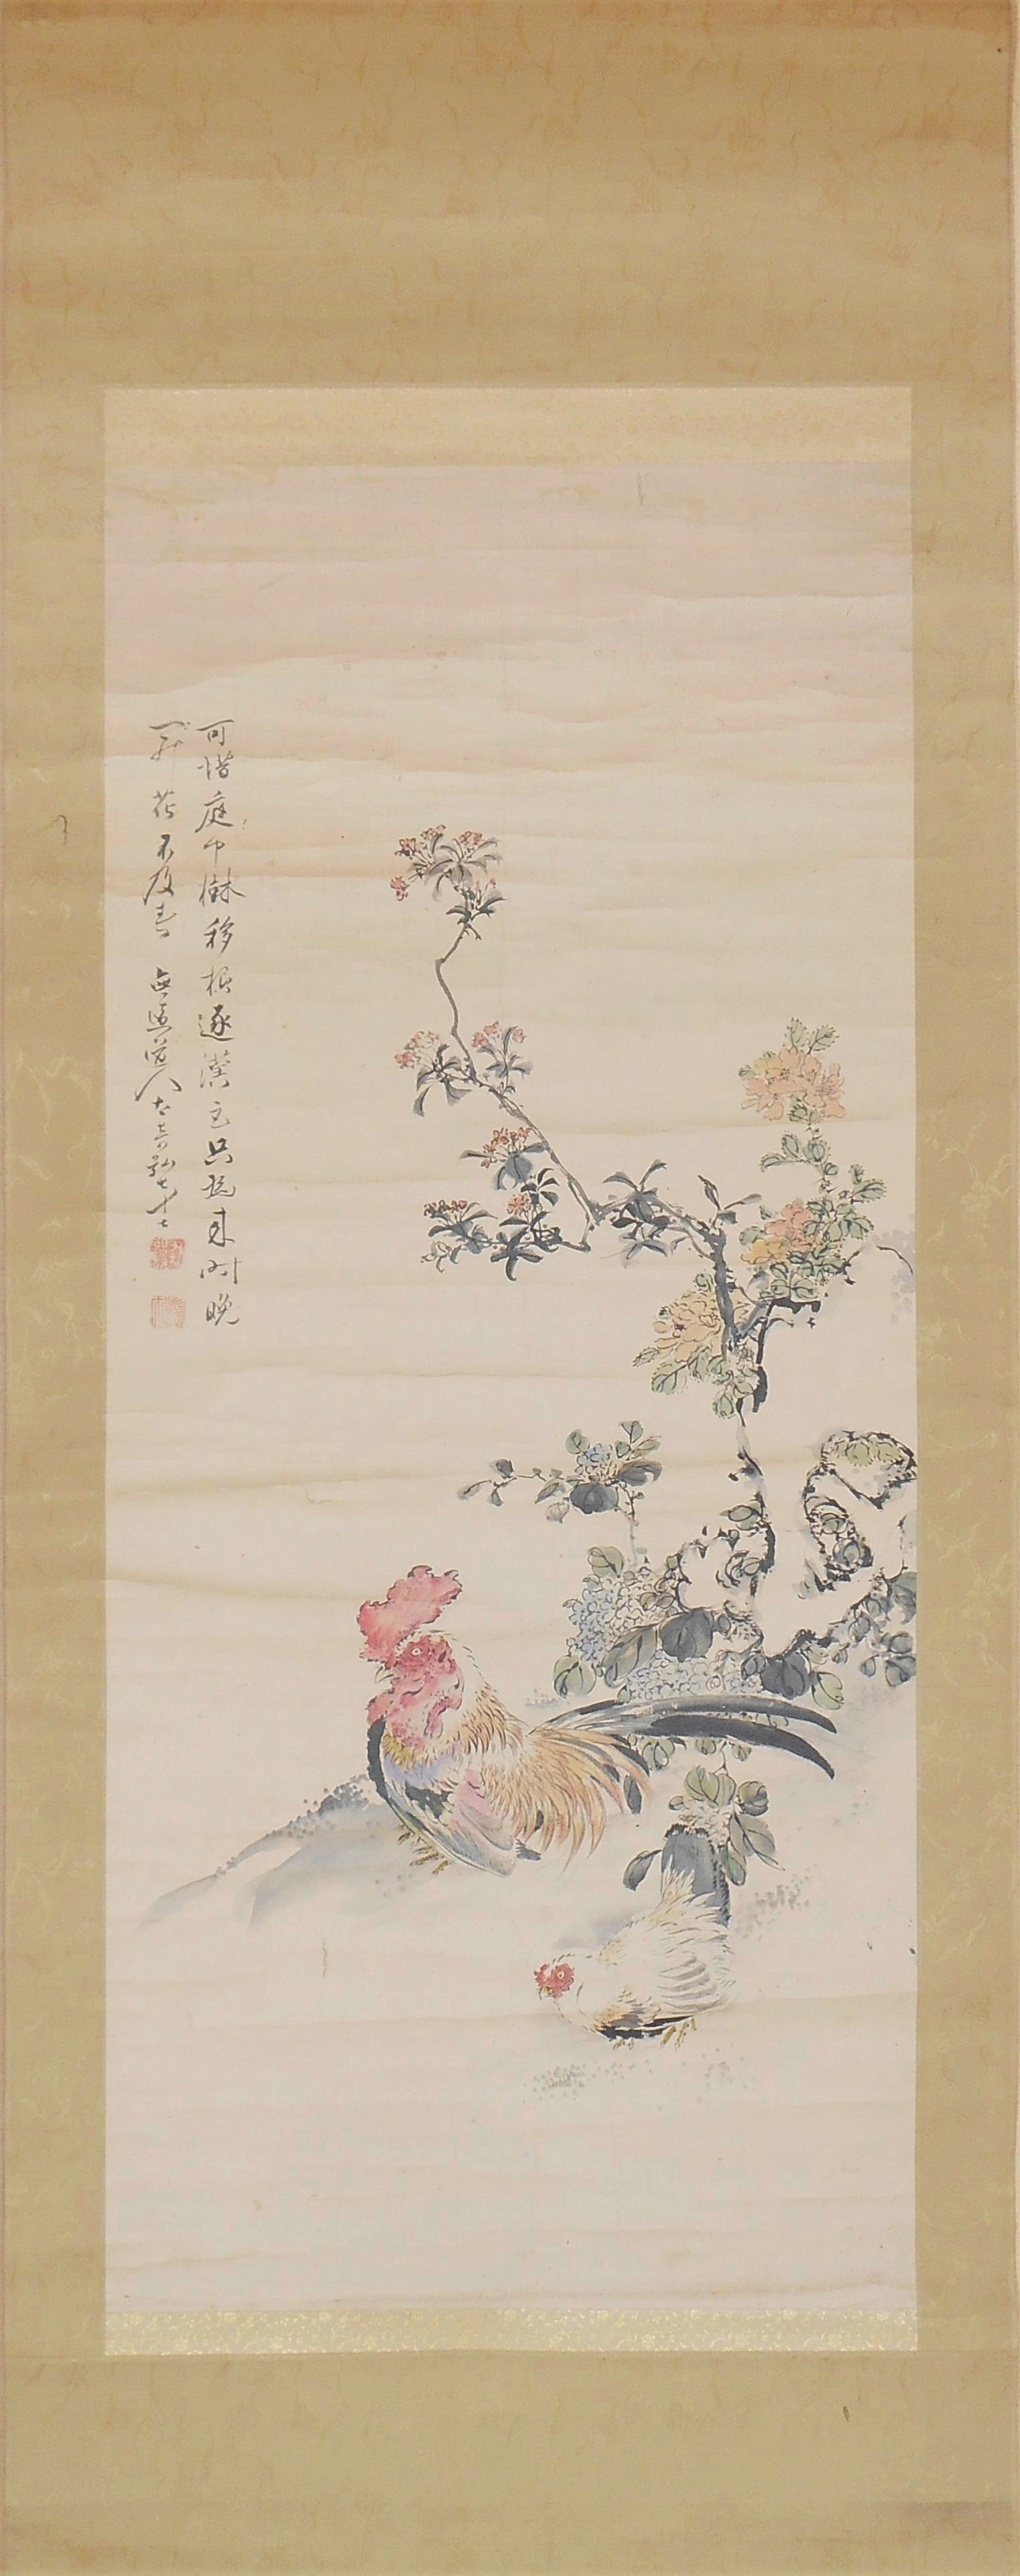 可惜庭中樹移根逐漢臣只為来時晚
開花不及春 無逸道人